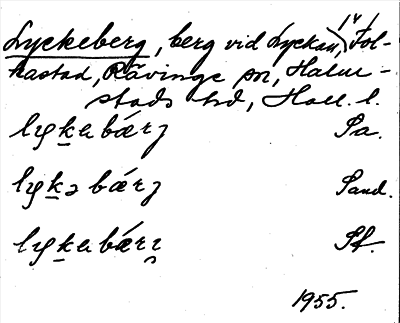 Lyckeberg, berg vid Lyckan, 1/4 Fol-
kastad, Rävinge sn, Halm-
stads hd, Hall. l.
lyk̲abærj Pa.
lyk̲əbærj Sand.
lyk̲abærɪ Pf.
1955.